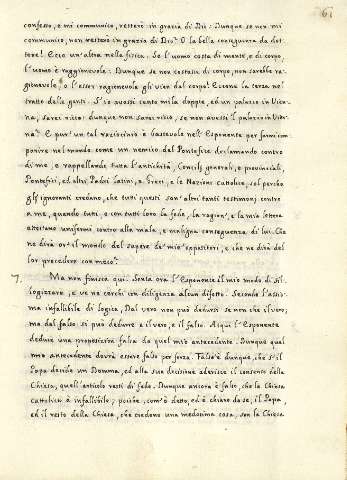 61
confesso, e mi communico, resterò in grazia di Dio: Dunque se non mi
communico, non resterò in grazia di Dio? O la bella conseguenza da dot
tore! Ecco un'altra nella fisica. Se l'uomo costa di mente, e di corpo,
l'uomo è raggionevole: Dunque se non costasse di corpo, non sarebbe ra-
gionevole, o l'esser ragionevole gli vien dal corpo? Eccone la terza nel
tratto della gente. S'io avessi cento mila doppie, ed un palazzo in Vien-
na, sarei ricco: dunque non sarei ricco, se non avessi l palazzo in Vien-
na? E pur un tal raziocinio è bastevole nell'Esponente per farmi com-
parire nel mondo come un nemico del Pontefice declamando contro
di me, e rappellando tutta l'antichità, Concilj generali, e provinciali,
Pontefici, ed altri Padri Latini, e Greci, e le Nazioni cattoliche, sol perche
gli ignoranti credano, che tutti questi son' altri tanti testimonj contro
a me, quando tutti, e con tutti loro la fede, la ragion', e la mia lettera
attestano uniformi contro alla mala, e maligna conseguenza di lui. Che
ne dirà or' il mondo del sapere de' miei espositori, e che ne dirà del
lor procedere con meco?
7. Ma non finisce qui. Senta ora l'Esponente il mio modo di sil-
logizzare, e ve ne cerchi con diligenza alcun difetto. Secondo l'assio-
ma infallibile di logica, Dal vero non può dedursi se non che il vero,
ma dal falso si può dedurre e il vero, e il falso. Or qui l'Esponente
deduce una proposizione falsa da quel mio antecedente. Dunque quel
mio antecedente dovrà essere falso per forza. Falso è dunque, che s'il
Papa decide un Domma, ed alla sua decisione aderisce il consenso della
Chiesa, quell'articolo resti di fede. Dunque ancora è falso, che la Chiesa
cattolica è infallibile; poiche, com'è detto, ed è chiaro da se, il Papa,
ed il resto della Chiesa, che credono una medesima cosa, son la Chiesa